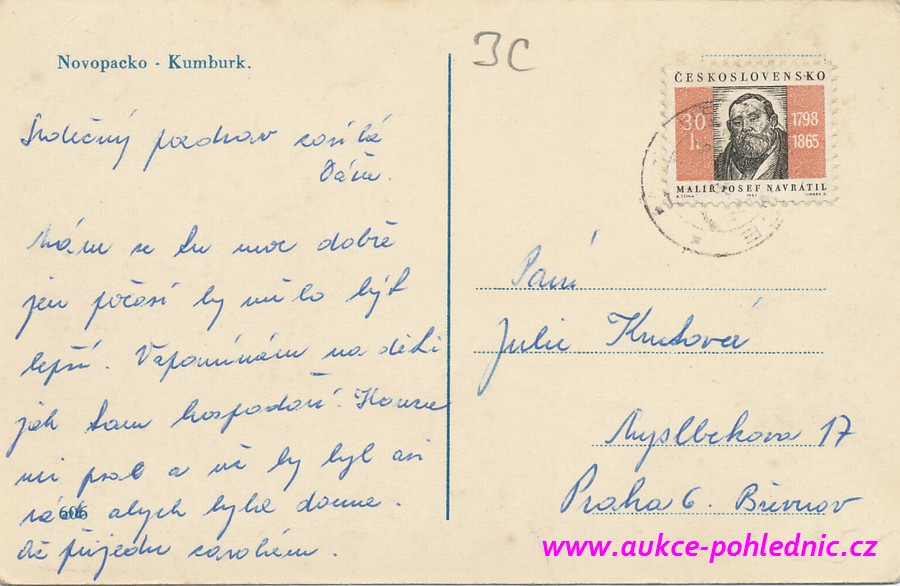 Novopacko - Kumburk.
JC
Srdečný pozdrav zasílá
Vám.
Mám se tu moc dobře
jen počasí by mělo být
lepší. Vzpomínám na děti
jak tam hospodaří.
mi psal a už by byl asi
rád abych byla doma.
Až přijedu zavolám.
606
ČESKOSLOVENSKO
30 h
1798
1865
MALÍŘ JOSEF NAVRÁTIL
Paní
Julie
Myslbekova 17
Praha 6. Břevnov
www.aukce-pohlednic.cz